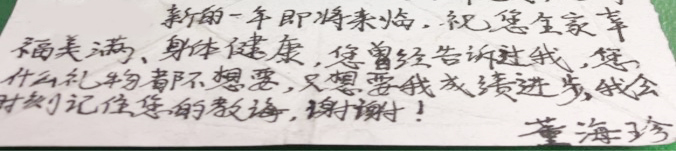 新的一年即将来临，祝您全家幸
福美满、身体健康，您曾经告诉过我，您
什么礼物都不想要，只想要我成绩进步，我会
时刻记住您的教诲，谢谢！
董海珍